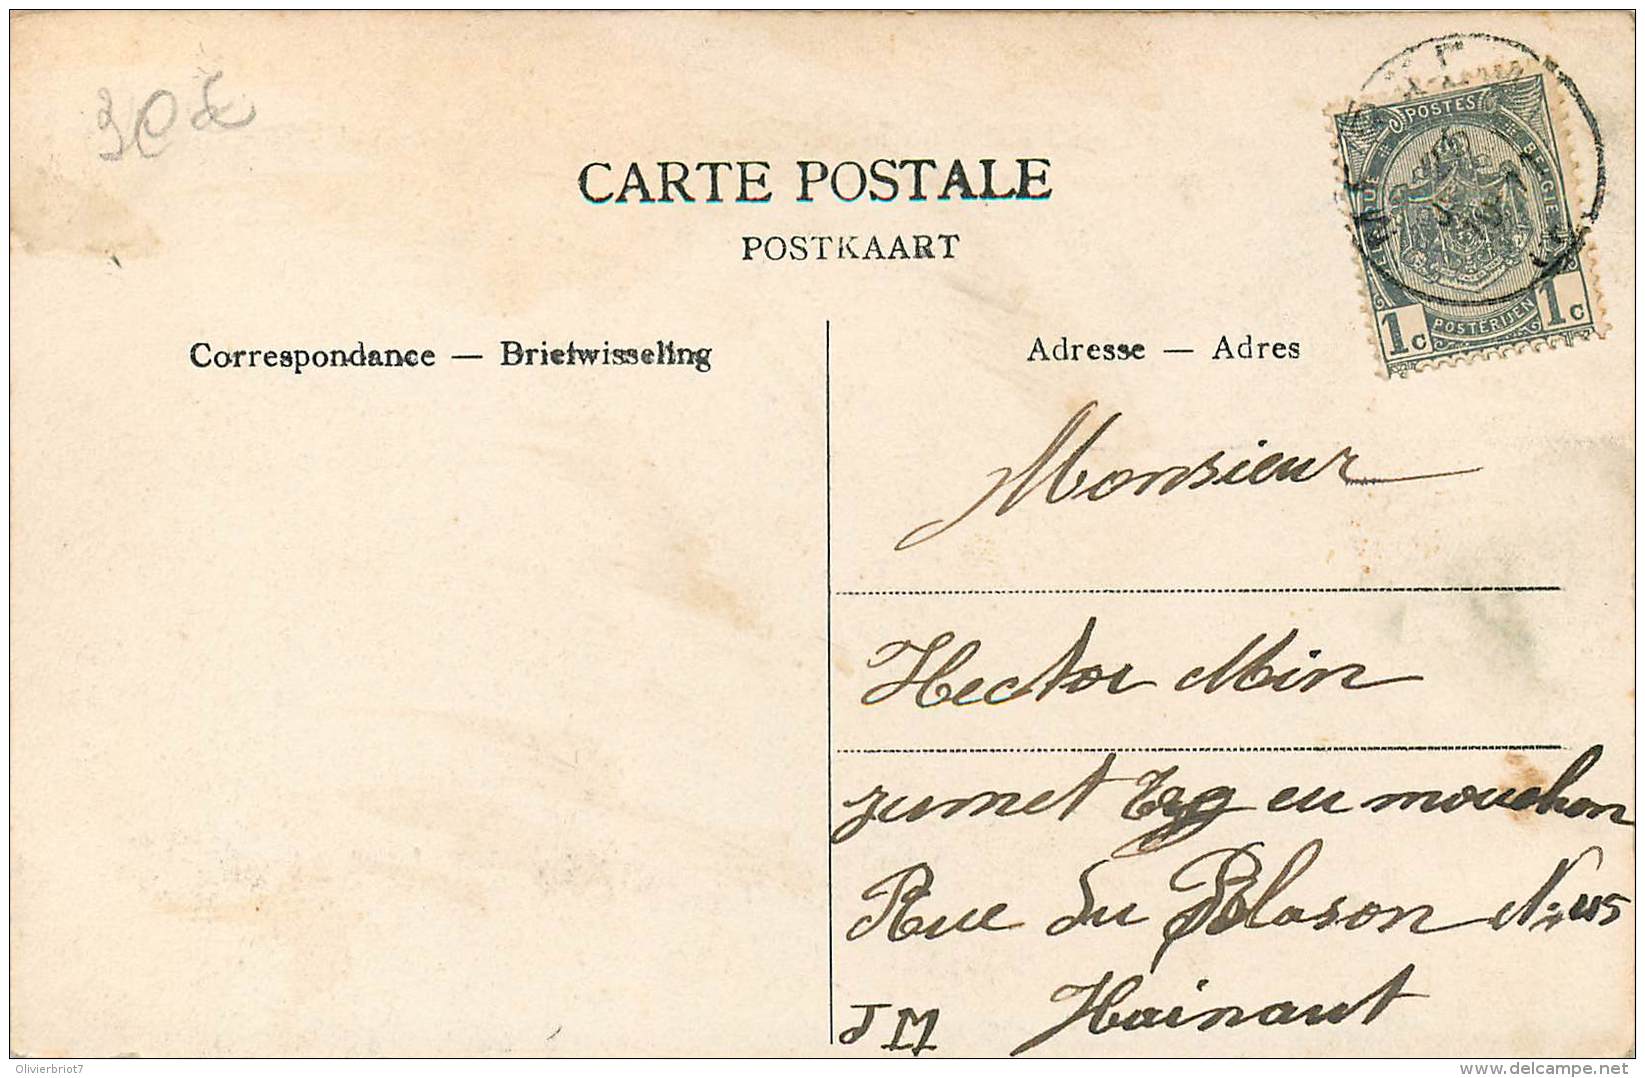 30€
CARTE POSTALE
POSTKAART
POSTES
BELGIE
POSTERIJEN
1c 1c
Correspondance — Briefwisseling
Adresse — Adres
Monsieur
Hector Min
Jumet en mouchon
Rue du Blason N:
Hainaut
JM
Olivierbriot7
www.delcampe.net